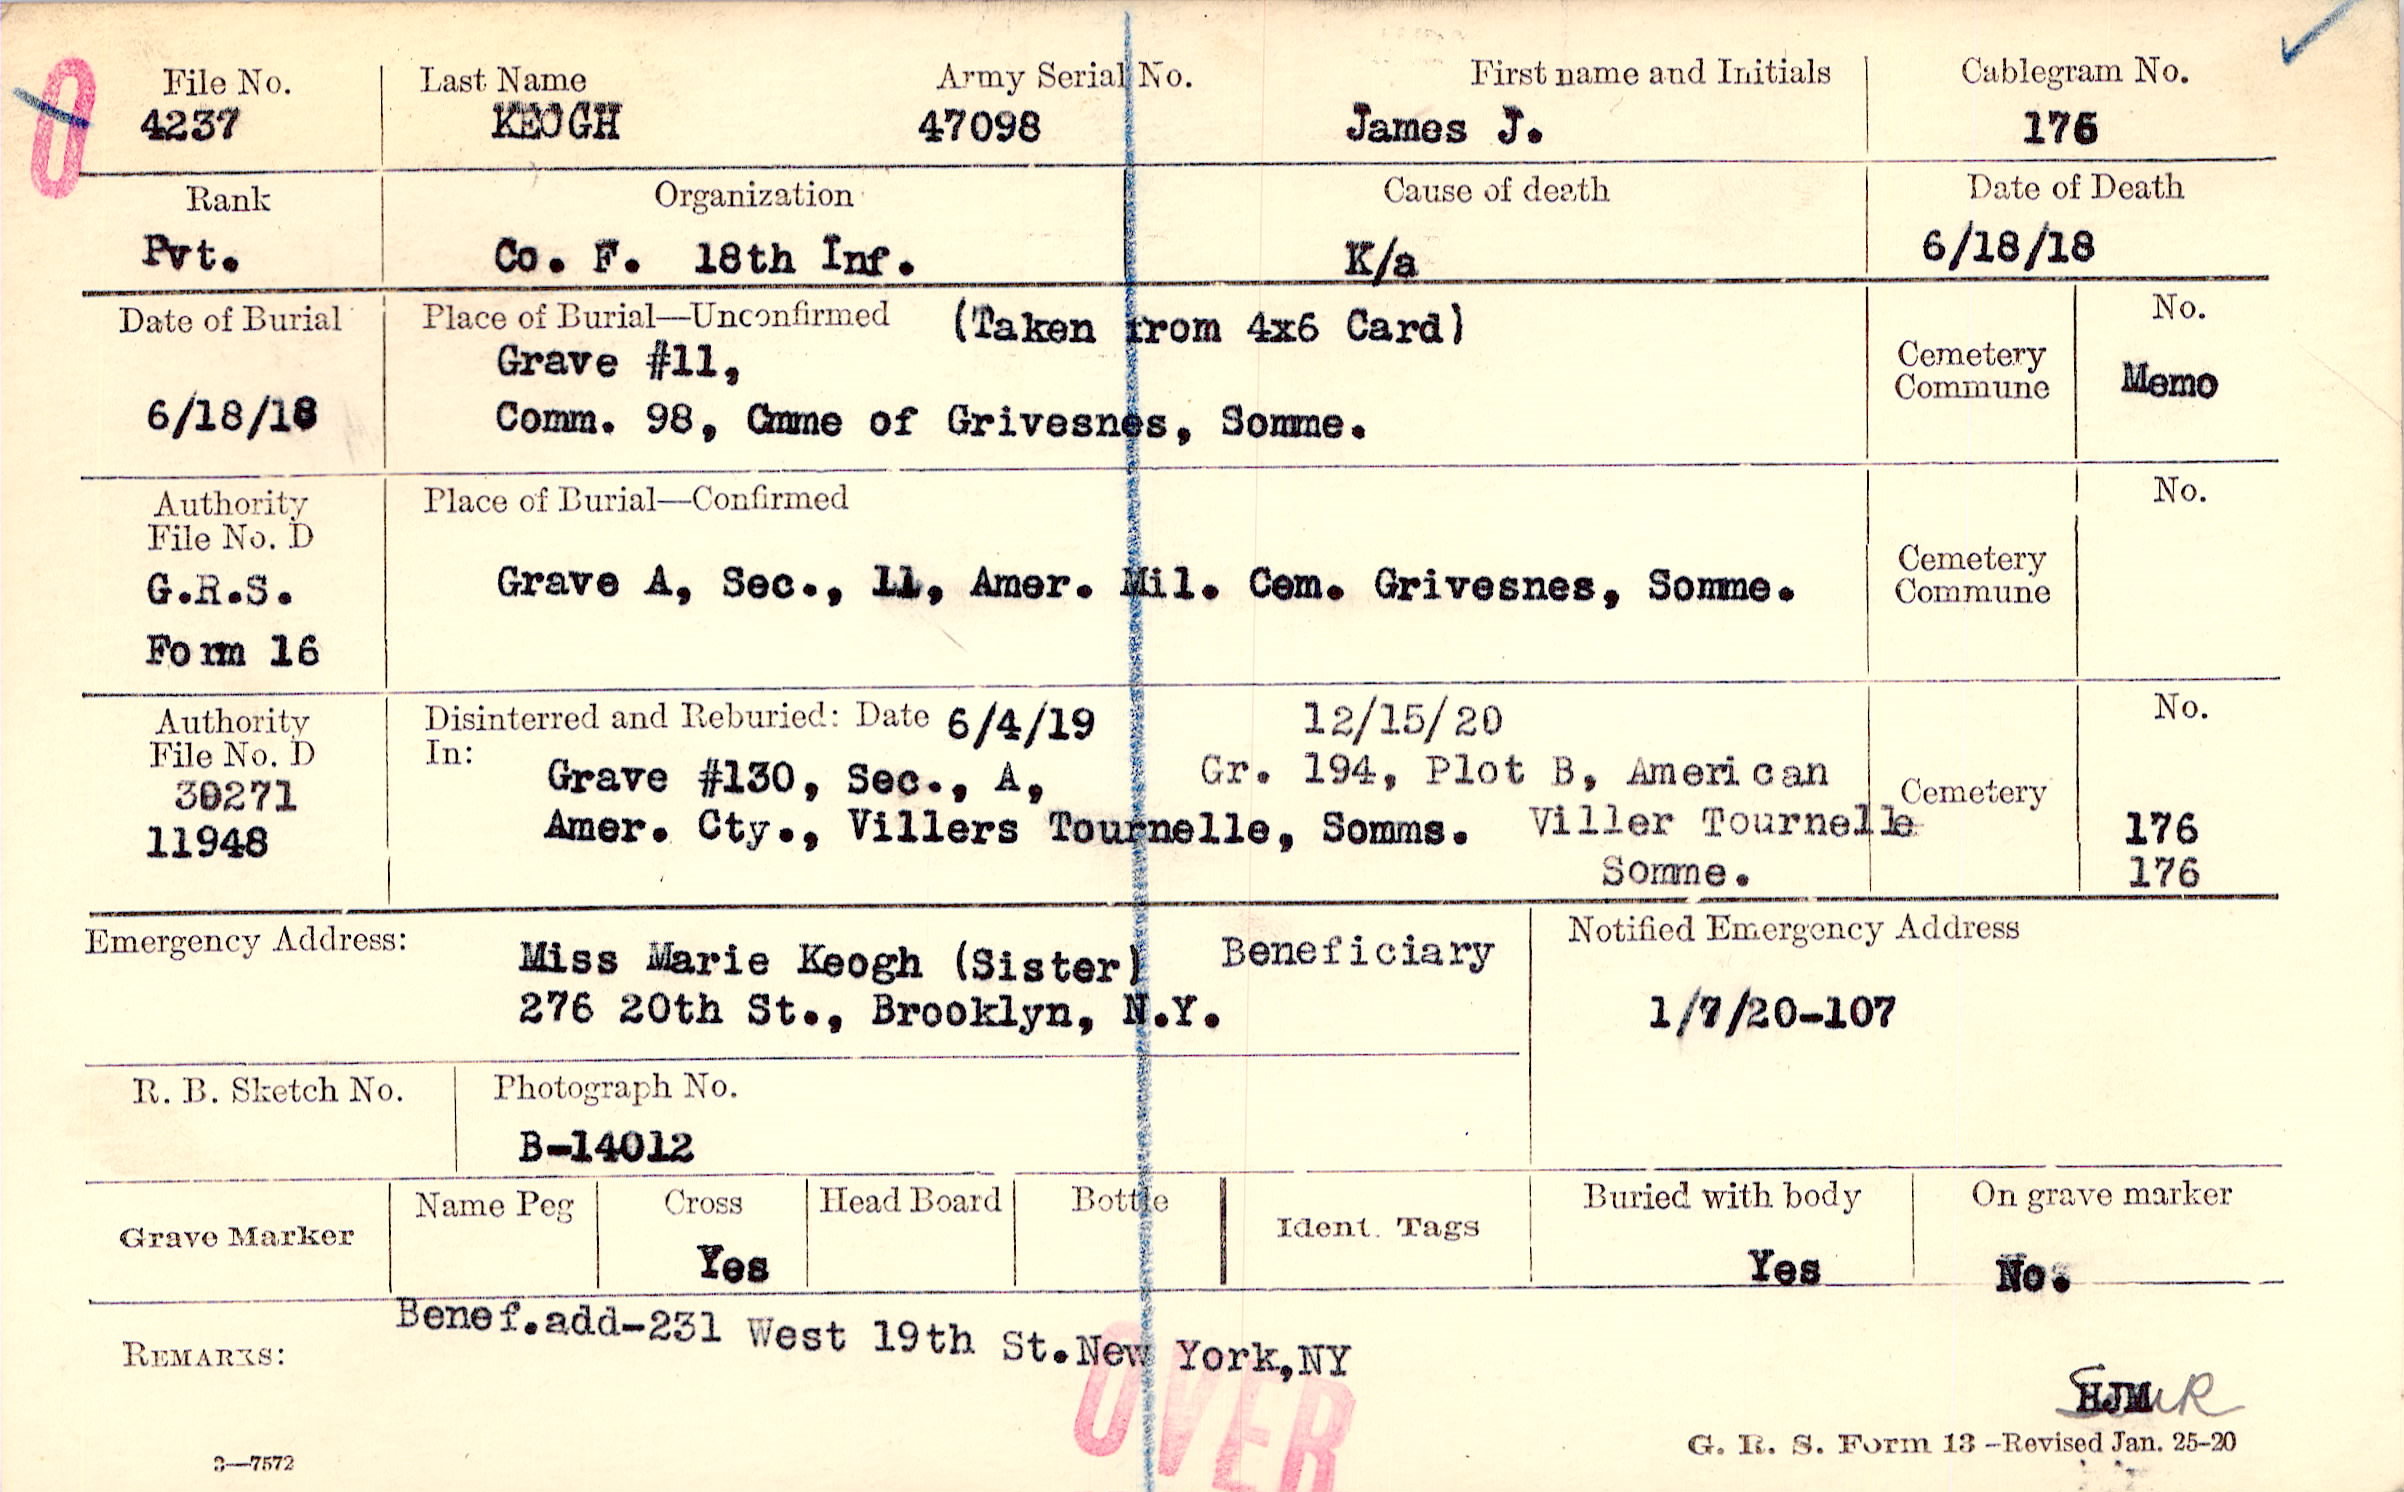 File No.
4237
Last Name
KEOGH
Army Serial No.
47098
First name and Initials
James J.
Cablegram No.
176
Rank
Pvt.
Organization
Co. F. 18th Inf.
Cause of death
K/a
Date of Death
6/18/18
Date of Burial
6/18/18
Place of Burial—Unconfirmed (Taken from 4x6 Card)
Grave #11,
Comm. 98, Cmme of Grivesnes, Somme.
Cemetery
Commune
No.
Memo
Authority
File No. D
G.R.S.
Form 16
Place of Burial—Confirmed
Grave A, Sec., 11, Amer. Mil. Cem. Grivesnes, Somme.
Cemetery
Commune
No.
Authority
File No. D
30271
11948
Disinterred and Reburied: Date 6/4/19
In:
Grave #130, Sec., A,
Amer. Cty., Villers Tournelle, Somms.
12/15/20
Gr. 194, Plot B, American
Viller Tournelle
Somme.
Cemetery
No.
176
176
Emergency Address:
Miss Marie Keogh (Sister) Beneficiary
276 20th St., Brooklyn, N.Y.
Notified Emergency Address
1/7/20-107
R. B. Sketch No.
Photograph No.
B-14012
Grave Marker
Name Peg
Cross
Yes
Head Board
Bottle
Ident. Tags
Buried with body
Yes
On grave marker
No.
REMARKS:
Benef.add-231 West 19th St.New York,NY
OVER
HJM
G. R. S. Form 13 -Revised Jan. 25-20
3—7572